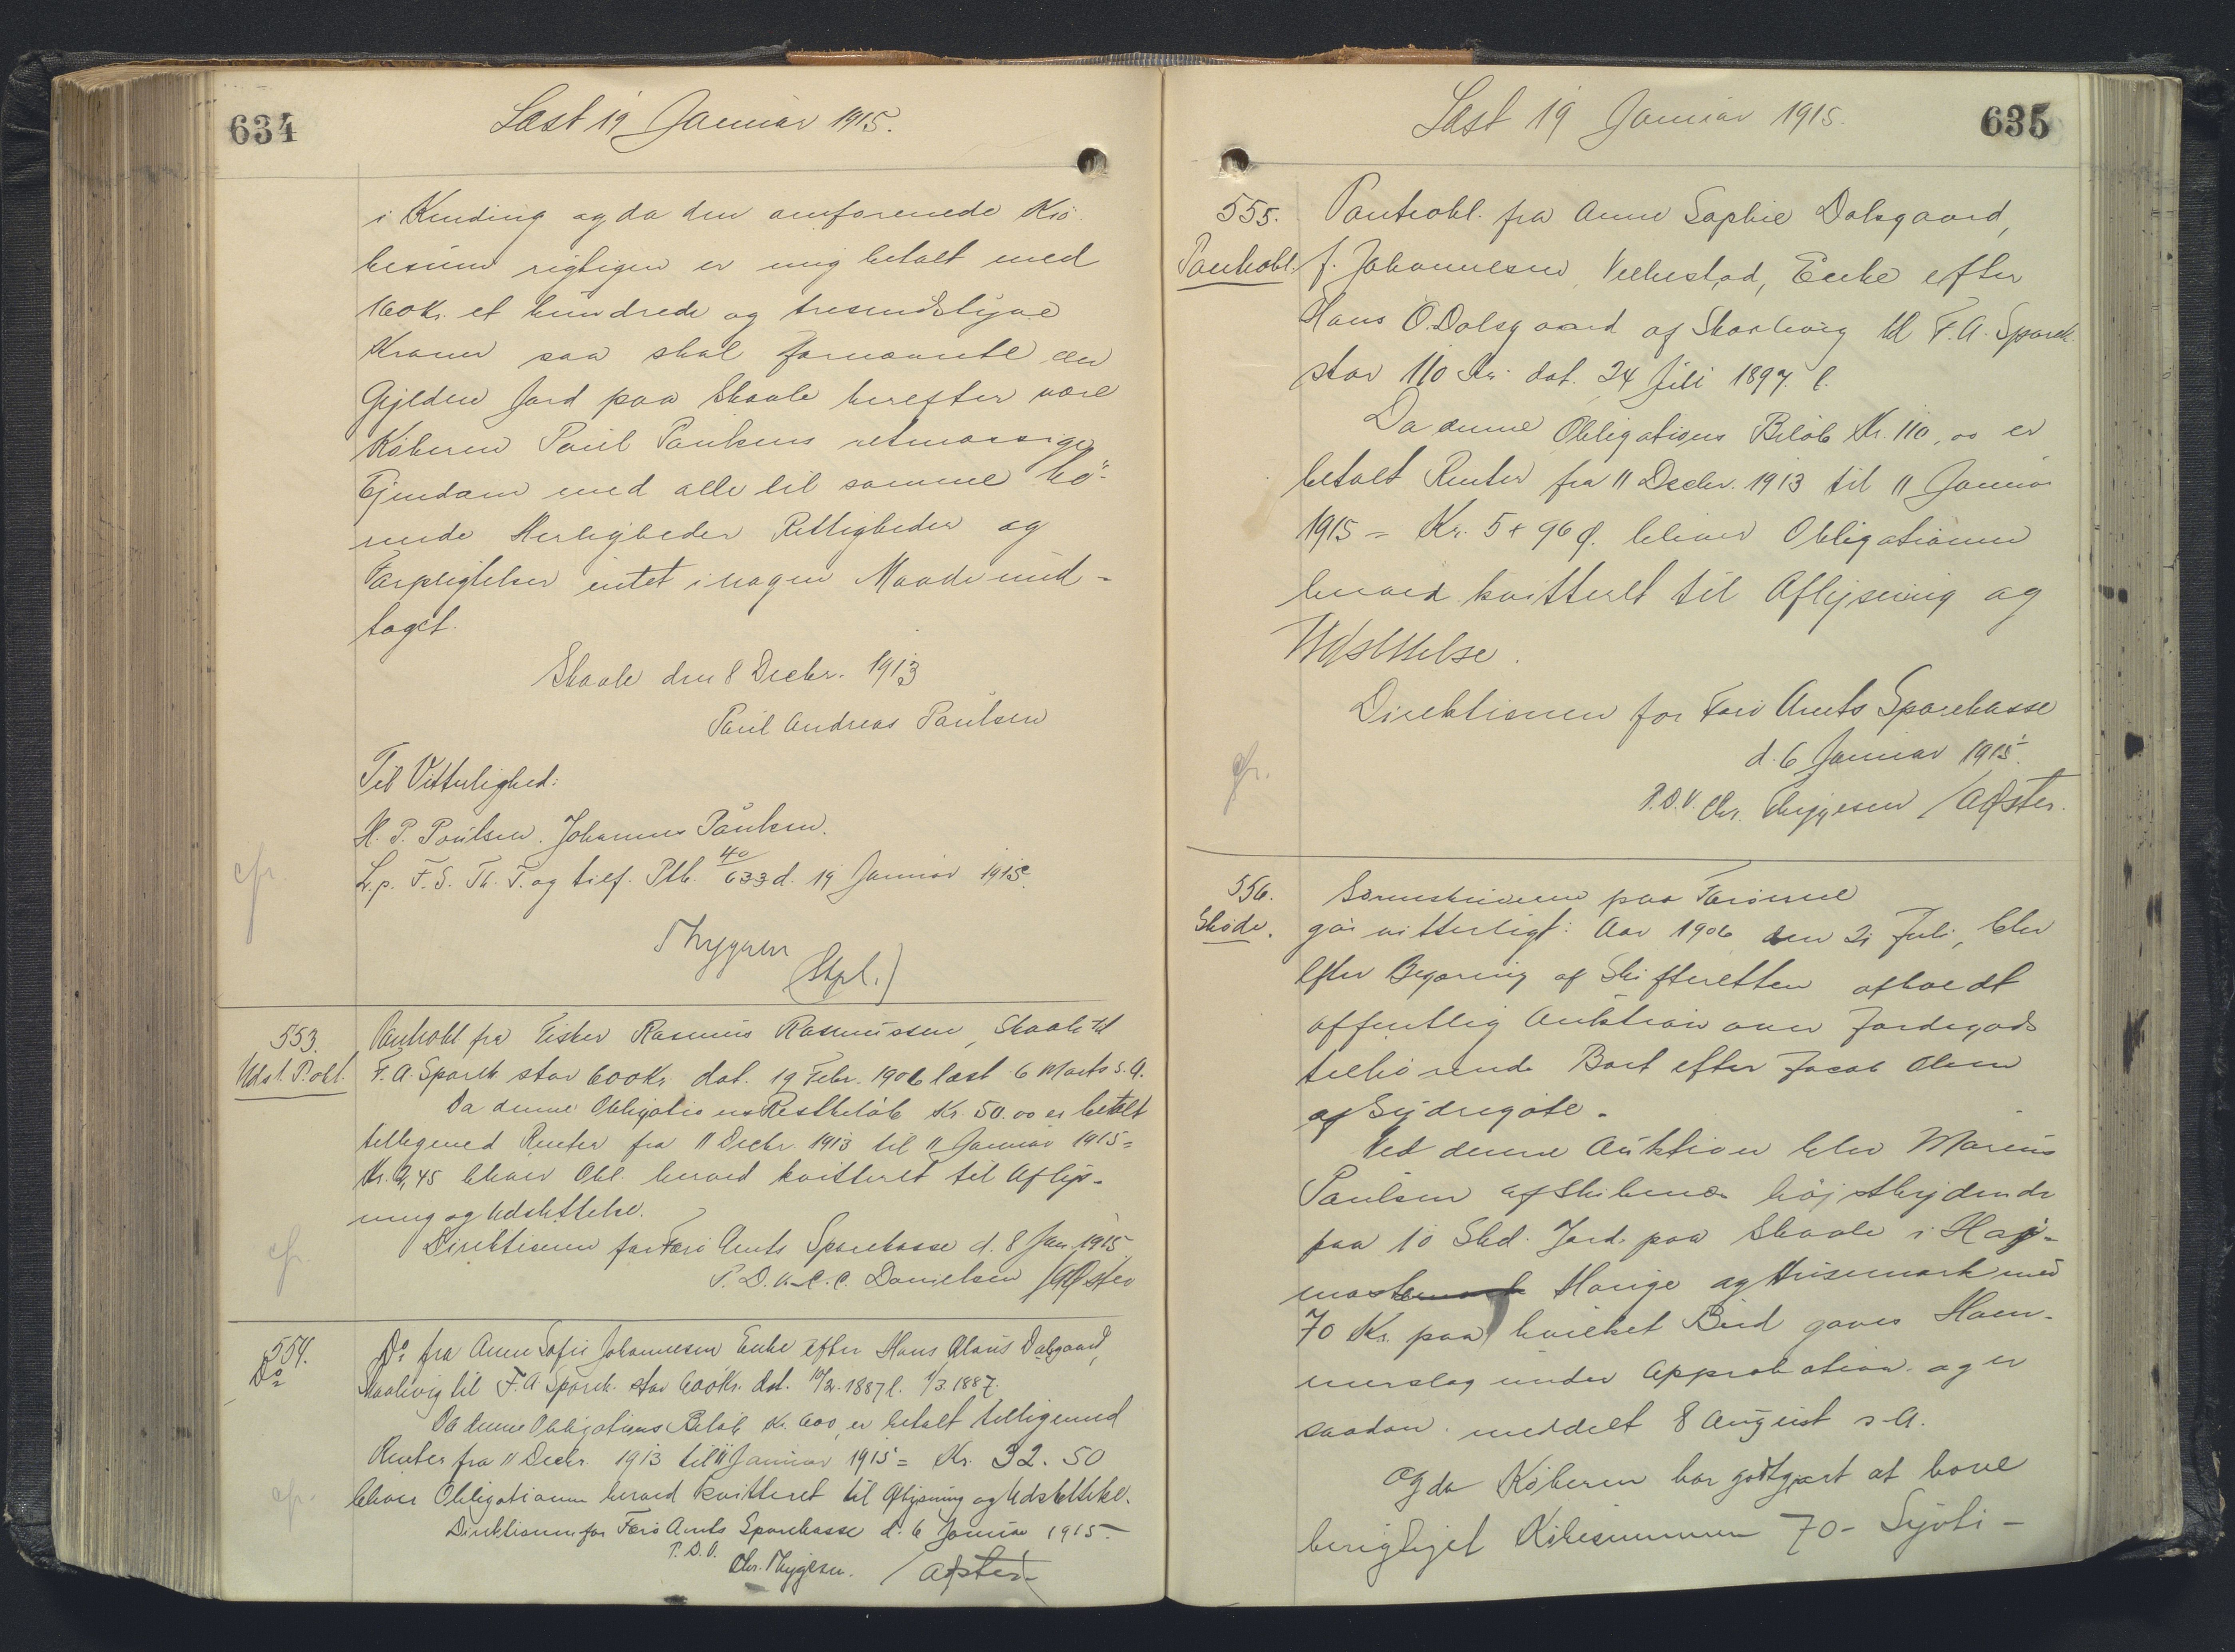 634
Læst 19 Januar 1915.
i Kinding og da den omforenede Kjö-
besum rigtigen er mig betalt med
160 Kr. et hundrede og tresindstyve
Kroner saa skal fornævnte en
Gylden Jord paa Skaale herefter være
Köberen Poul Poulsens retmæssige
Ejendom med alle til samme hö-
rende Herligheder Rettigheder og
Forpligtelser intet i nogen Maade und-
taget.
Skaale den 8 Decbr. 1913
Poul Andreas Poulsen
Til Vitterlighed:
H. P. Poulsen. Johannes Poulsen.
L. p. F. S. Th. T. og tilf. Ptb. 40/633 d. 19 Januar 1915.
cfr.
Thygesen
(Stpl.)
553.
Udst. P.obl.
Panteobl fra Fisker Rasmus Rasmussen, Skaale til
F. A. Spark. stor 600 Kr. dat. 19 Febr. 1906 læst 6 Marts s. A.
Da denne Obligations Restbelöb Kr. 50.00 er betalt
tilligemed Renter fra 11 Decbr. 1913 til 11 Januar 1915 =
Kr. 2,45 bliver Obl. herved kvitteret til Aflys-
ning og Udslettelse.
cfr.
Direktionen for Færö Amts Sparekasse d. 8 Jan. 1915
P. D. V. C. C. Danielsen /A Øster
554.
Do
Do fra Anne Sofie Johannesen Enke efter Hans Olaus Dalsgaard,
Skaalevig til F. A. Spark. stor 600 Kr. dat. 10/2. 1887 l. 1/3. 1887.
Da denne Obligations Belöb Kr. 600, er betalt tilligemed
Renter fra 11 Decbr. 1913 til 11 Januar 1915 = Kr. 32.50
bliver Obligationen herved kvitteret til Aflysning og Udslettelse.
cfr.
Direktionen for Færö Amts Sparekasse d. 6 Januar 1915.
P. D. V.
Chr. Thygesen. / A Øster
Læst 19 Januar 1915.
635
555.
Panteobl.
Panteobl. fra Anne Sophie Dalsgaard,
f. Johannesen, Velbestad, Enke efter
Hans O. Dalsgaard af Skaalevig til F. A. Spark.
stor 110 Kr. dat. 24 Juli 1897. l.
Da denne Obligations Belöb Kr. 110,00 er
betalt Renter fra 11 Decbr. 1913 til 11 Januar
1915 = Kr. 5 + 96 Ø. bliver Obligationen
herved kvitteret til Aflysning og
Udslettelse.
Direktionen for Færö Amts Sparekasse
d. 6 Januar 1915.
cfr.
P. D. V. Chr. Thygesen / A Øster.
556.
Sköde.
Sorenskriveren paa Færöerne
gör vitterligt: Aar 1906 den 21 Juli, blev
efter Begæring af Skifteretten afholdt
offentlig Auktion over Jordegods
tilhörende Boet efter Jacob Olsen
af Sydregöte.
Ved denne Auktion blev Marius
Poulsen af Skibenæs højstbydende
paa 10 Skd. Jord paa Skaale i
Hauge og Husemark med
70 Kr. paa hvilket Bud gaves Ham-
merslag under Approbation og er
saadan meddelt 8 August s. A.
Og da Köberen har godtgjort at have
berigtiget Köbesummen 70 - Syvti -